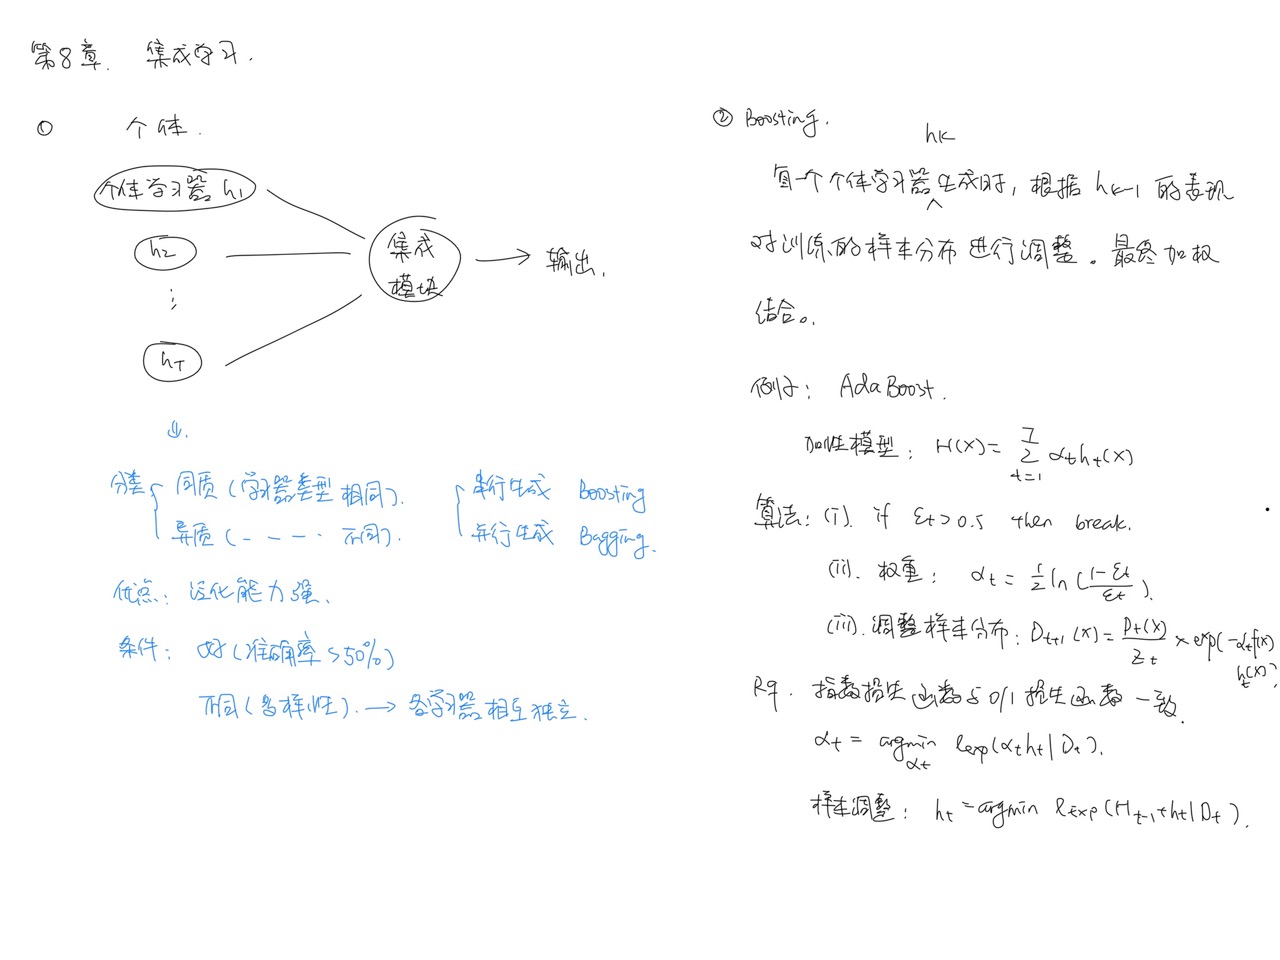 第8章. 集成学习.
① 个体.
个体学习器 h₁
h₂
⋮
h_T
集成
模块
→ 输出.
↓.
分类 { 同质 (学习器类型相同). { 串行生成 Boosting
异质 (- - - - 不同). 并行生成 Bagging.
优点: 泛化能力强.
条件: 好 (准确率 >50%)
不同 (多样性). → 各学习器相互独立.
② Boosting.
h_k
每一个个体学习器^生成时, 根据 h_{k-1} 的表现
对训练的样本分布进行调整。最终加权
结合。.
例子: AdaBoost.
加性模型: H(x) = Σ_{t=1}^{T} α_t h_t(x)
算法: (i). if ε_t > 0.5 then break.
(ii). 权重: α_t = ½ ln(\frac{1-ε_t}{ε_t}).
(iii). 调整样本分布: D_{t+1}(x) = \frac{D_t(x)}{Z_t} × exp(-α_t f(x) h_t(x))
指数损失函数与0/1损失函数一致.
α_t = argmin_{α_t} ℓexp(α_t h_t | D_t).
样本调整: h_t = argmin ℓexp(H_{t-1}+h_t | D_t).